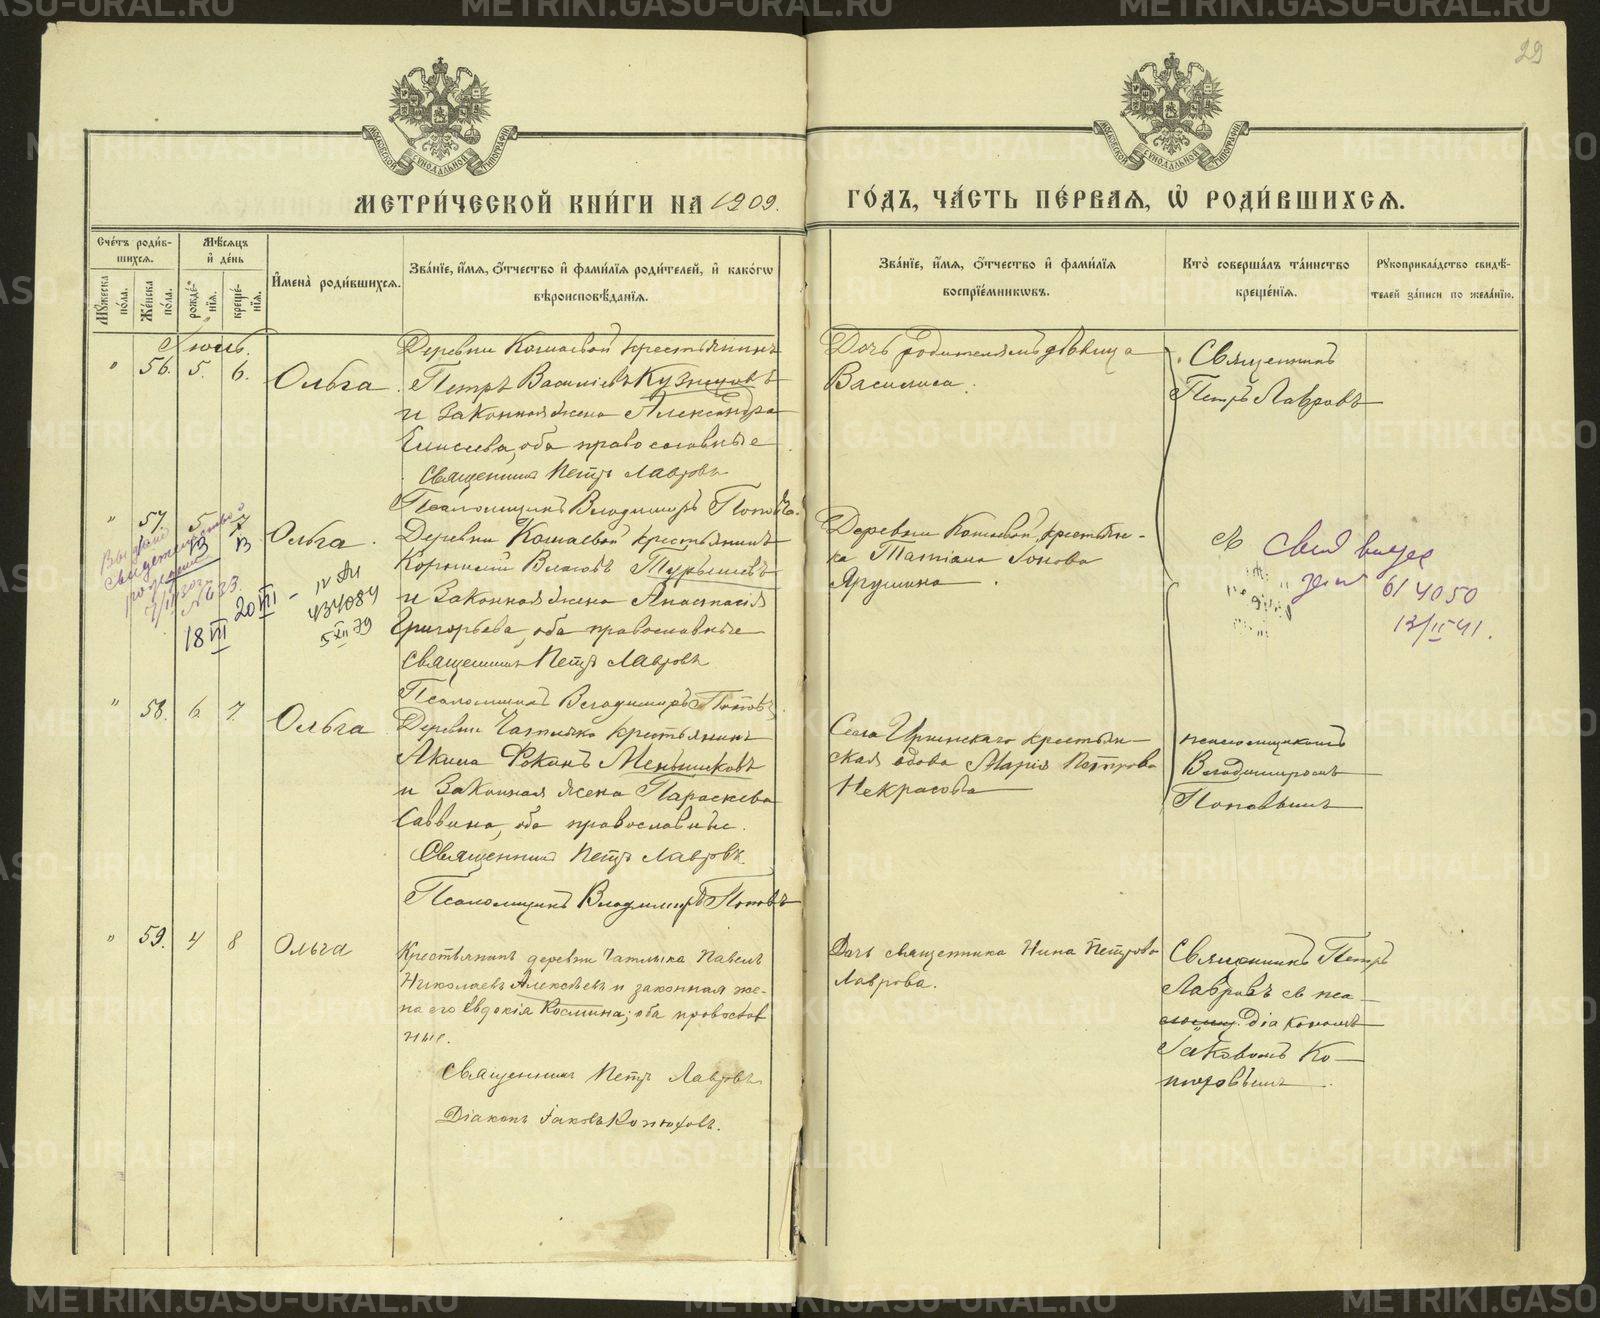 29
МЕТРИ́ЧЕСКОЙ КНИ́ГИ НА 1909.
ГО́ДЪ, ЧА́СТЬ ПЕ́РВАЯ, Ѡ РОДИ́ВШИХСЯ.
МОСКОВСКОЙ СѴНОДАЛЬНОЙ ТИПОГРАФІИ
МОСКОВСКОЙ СѴНОДАЛЬНОЙ ТИПОГРАФІИ
Сче́тъ роди́вшихся.
Мꙋ́жеска по́ла.
Же́нска по́ла.
Мѣ́сяцъ и де́нь
рожде́нїя.
креще́нїя.
Имена̀ роди́вшихся.
Зва́нїе, и́мя, ѻ́тчество и фами́лїя роди́телей, и како́гѡ
вѣроисповѣ́данїя.
Зва́нїе, и́мя, ѻ́тчество и фами́лїя
воспрїе́мникѡвъ.
Кто̀ соверша́лъ та́инство
креще́нїя.
Рꙋкоприкла́дство свидѣ́-
телей за́писи по жела́нїю.
Іюль.
" 56. 5. 6. Ольга.
Деревни Кошаевой крестьянинъ
Петръ Василіевъ Кузнецовъ
и законная жена Александра
Елисѣева, оба православные
Священникъ Петръ Лавровъ
Псаломщикъ Владимиръ Поповъ.
Дочь родителямъ дѣвица
Василиса.
Священникъ
Петръ Лавровъ
" 57. 5 7 Ольга.
18 VII 20 VII
434084
5 XII 79
Деревни Кошаевой крестьянинъ
Корнилій Власовъ Турышевъ
и законная жена Анастасія
Григорьева, оба православные
Священникъ Петръ Лавровъ
Псаломщикъ Владимиръ Поповъ.
Деревни Кошаевой, крестьян-
ка Татіана Іонова
Ярушина.
съ
61 4050
13/II 41.
" 58. 6. 7. Ольга.
Деревни Чатлыка крестьянинъ
Акила Фокинъ Меньшиковъ
и законная жена Параскева
Саввина, оба православные.
Священникъ Петръ Лавровъ
Псаломщикъ Владимиръ Поповъ
Села Иргинскаго крестьян-
ская вдова Марія Петрова
Некрасова
псаломщикомъ
Владимиромъ
Поповымъ
" 59. 4 8 Ольга
Крестьянинъ деревни Чатлыка Павелъ
Николаевъ Алексѣевъ и законная же-
на его Евдокія Космина; оба православ
ные.
Священникъ Петръ Лавровъ
Діаконъ Іаковъ Конюховъ.
Дочь священника Нина Петрова
Лаврова.
Священникъ Петръ
Лавровъ съ пса-
ломщ. Діакономъ
Іаковомъ Ко-
нюховымъ.